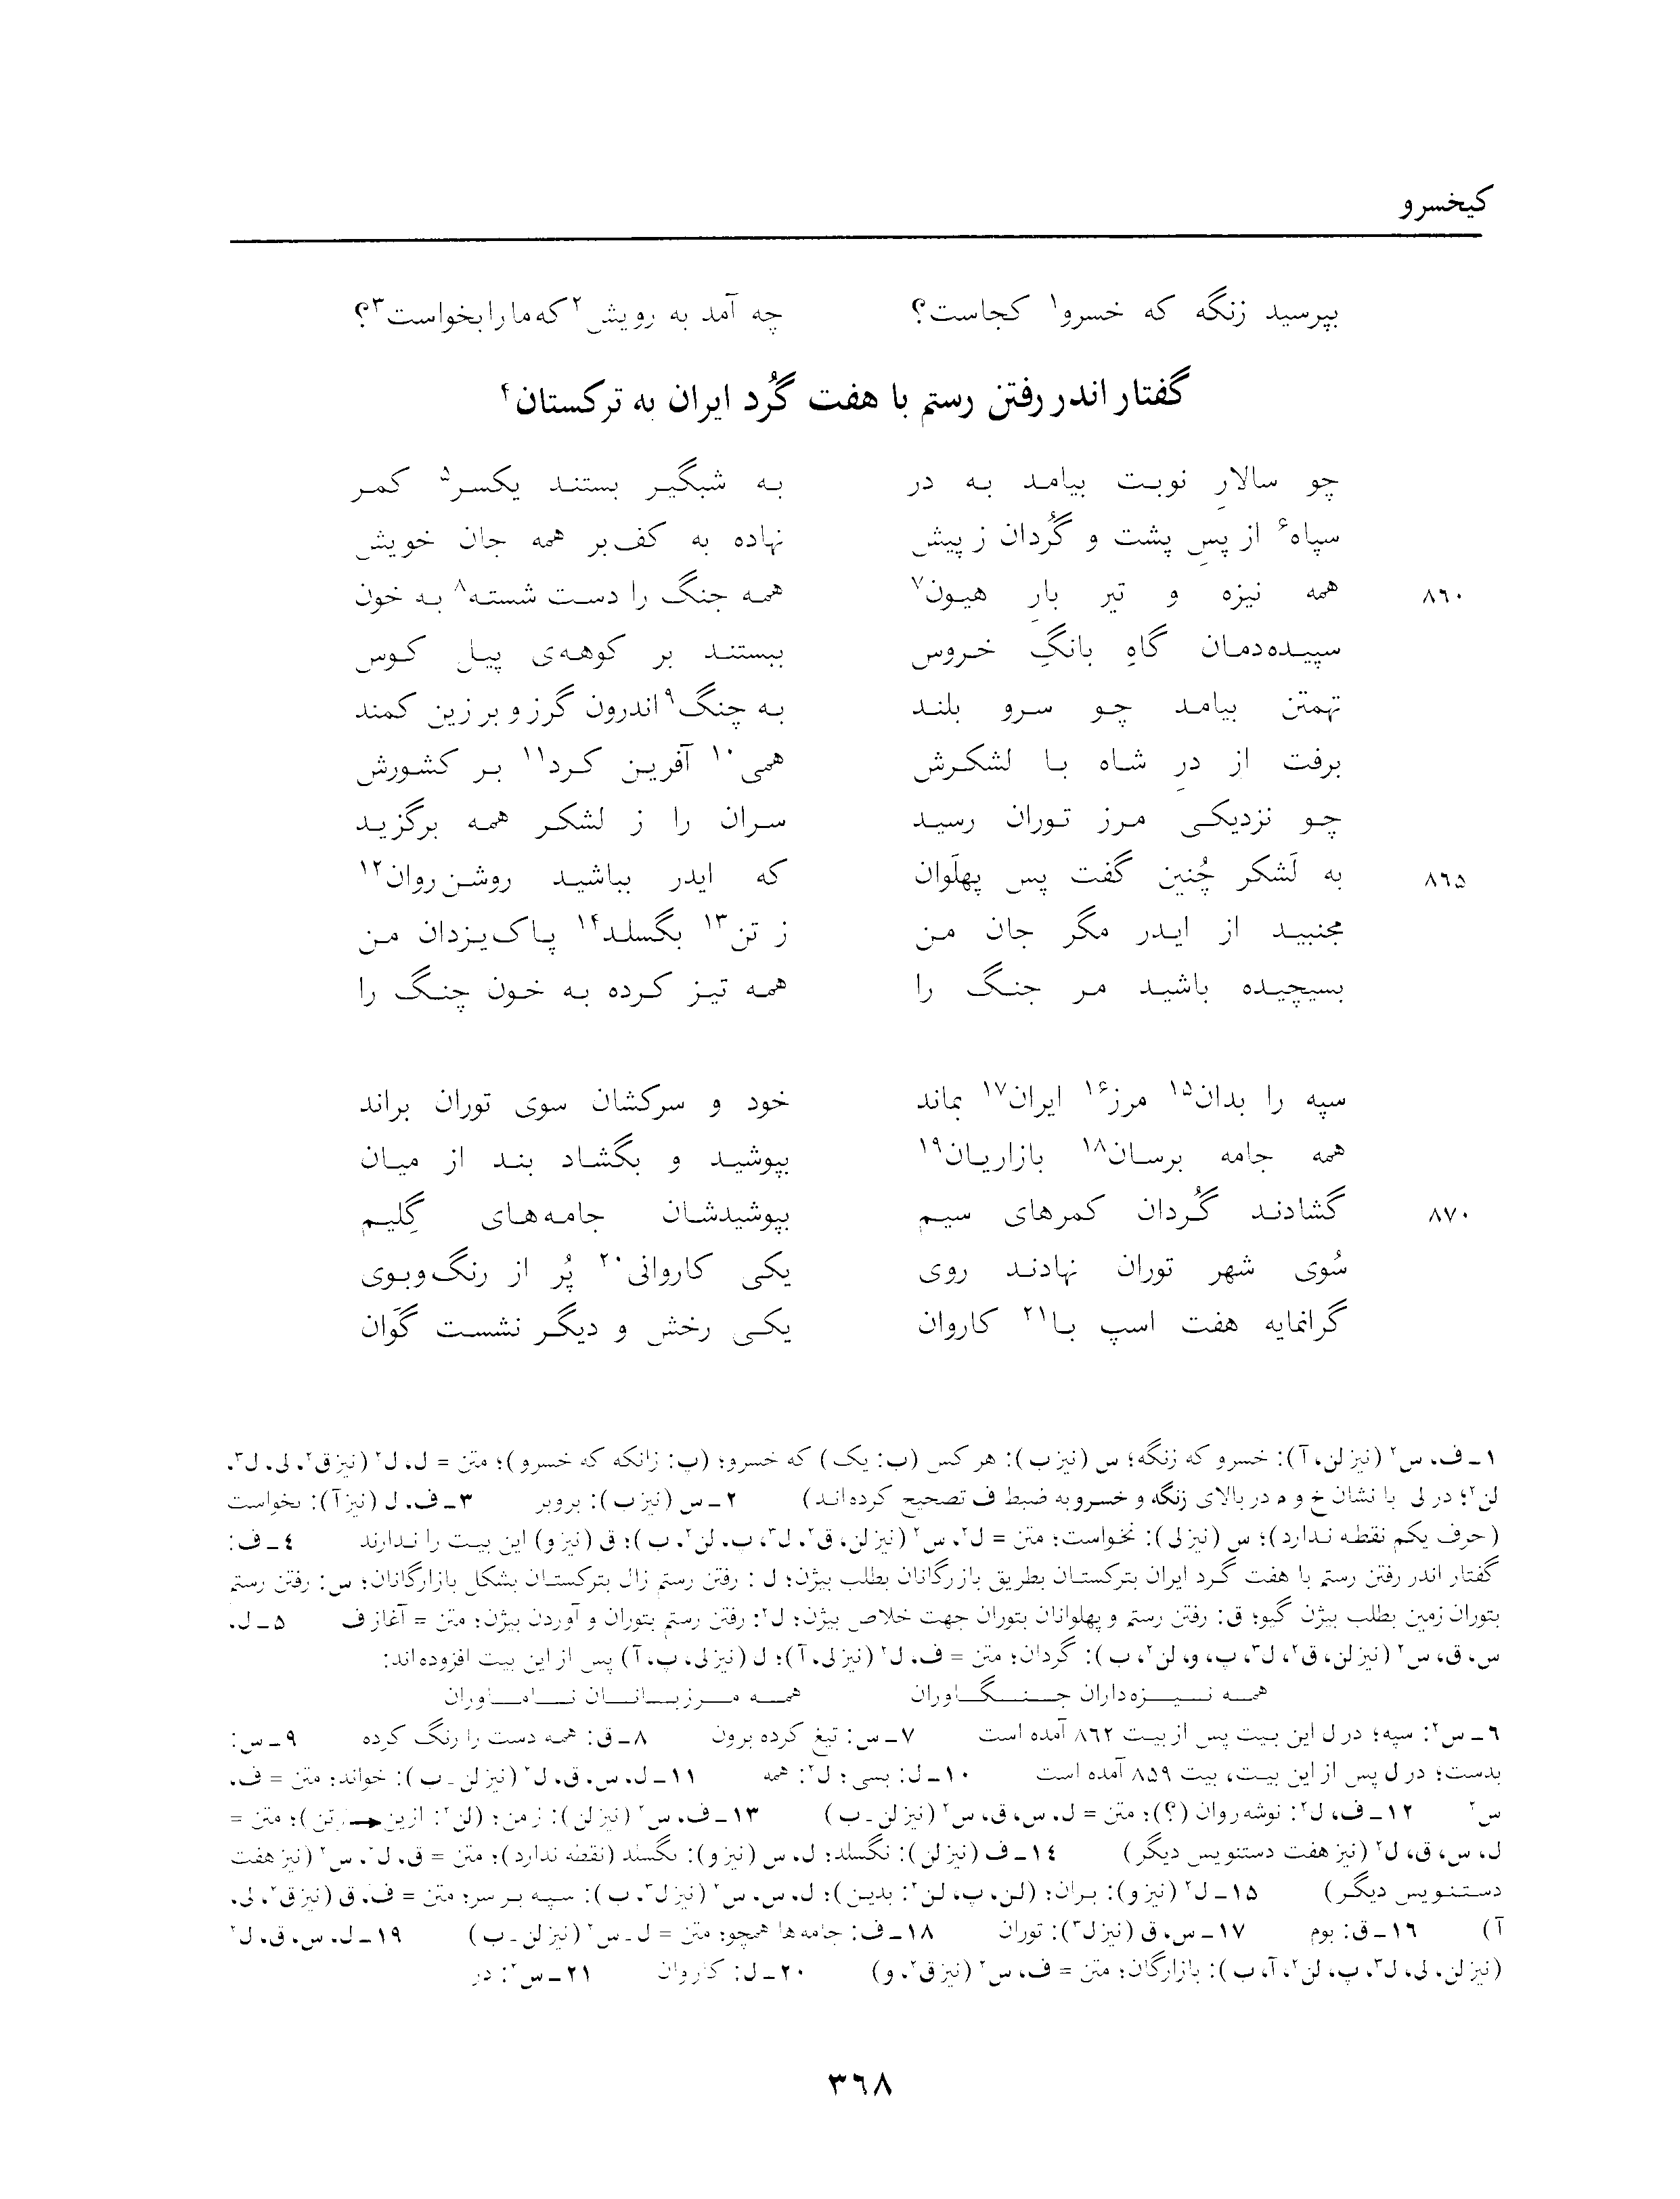 کیخسرو
بپرسید زنگه که خسرو۱ کجاست؟ چه آمد به رویش۲ که ما را بخواست۳؟
گفتار اندر رفتن رستم با هفت گُرد ایران به ترکستان۴
چو سالارِ نوبت بیامد به در به شبگیر بستند یکسر۵ کمر
سپاه۶ از پسِ پشت و گُردان ز پیش نهاده به کف‌بر همه جان خویش
۸۶۰ همه نیزه و تیر بارِ هیون۷ همه جنگ را دست شسته۸ به خون
سپیده‌دمان گاهِ بانگِ خروس ببستند بر کوهه‌ی پیل کوس
تهمتن بیامد چو سرو بلند به چنگ۹ اندرون گرز و بر زین کمند
برفت از درِ شاه با لشکرش همی۱۰ آفرین کرد۱۱ بر کشورش
چو نزدیکی مرز توران رسید سران را ز لشکر همه برگزید
۸۶۵ به لَشکر چُنین گفت پس پهلَوان که ایدر بباشید روشن‌روان۱۲
مجنبید از ایدر مگر جان من ز تن۱۳ بگسلد۱۴ پاک‌یزدان من
بسیچیده باشید مر جنگ را همه تیز کرده به خون چنگ را
سپه را بدان۱۵ مرز۱۶ ایران۱۷ بماند خود و سرکشان سوی توران براند
همه جامه برسان۱۸ بازاریان۱۹ بپوشید و بگشاد بند از میان
۸۷۰ گشادند گُردان کمرهای سیم بپوشیدشان جامه‌های گِلیم
سُوی شهر توران نهادند روی یکی کاروانی۲۰ پُر از رنگ‌وبوی
گرانمایه هفت اسپ با۲۱ کاروان یکی رخش و دیگر نشست گَوان
۱ـ ف، س۲ (نیز لن، آ): خسرو که زنگه؛ س (نیز ب): هر کس (ب: یک) که خسرو؛ (پ: زانکه که خسرو)؛ متن = ل، ل۲ (نیز ق۲، لی، ل۳،
لن۲؛ در لی با نشان خ و م در بالای زنگه و خسرو به ضبط ف تصحیح کرده‌اند) ۲ـ س (نیز ب): بروبر ۳ـ ف، ل (نیز آ): ںخواست
(حرف یکم نقطه ندارد)؛ س (نیز لی): نخواست؛ متن = ل۲، س۲ (نیز لن، ق۲، ل۳، پ، لن۲، ب)؛ ق (نیز و) این بیت را ندارند ۴ـ ف:
گفتار اندر رفتن رستم با هفت گرد ایران بترکستان بطریق بازرگانان بطلب بیژن؛ ل: رفتن رستم زال بترکستان بشکل بازارگانان؛ س: رفتن رستم
بتوران زمین بطلب بیژن گیو؛ ق: رفتن رستم و پهلوانان بتوران جهت خلاص بیژن؛ ل۲: رفتن رستم بتوران و آوردن بیژن؛ متن = آغاز ف ۵ـ ل،
س، ق، س۲ (نیز لن، ق۲، ل۳، پ، و، لن۲، ب): گردان؛ متن = ف، ل۲ (نیز لی، آ)؛ ل (نیز لی، پ، آ) پس از این بیت افزوده‌اند:
همه نیزه‌داران جنگاوران همه مرزبانان نام‌اوران
۶ـ س۲: سپه؛ در ل این بیت پس از بیت ۸۶۲ آمده است ۷ـ س: تیغ کرده برون ۸ـ ق: همه دست را رنگ کرده ۹ـ س:
بدست؛ در ل پس از این بیت، بیت ۸۵۹ آمده است ۱۰ـ ل: بسی؛ ل۲: همه ۱۱ـ ل، س، ق، ل۲ (نیز لن ـ ب): خواند؛ متن = ف،
س۲ ۱۲ـ ف، ل۲: نوشه‌روان (؟)؛ متن = ل، س، ق، س۲ (نیز لن ـ ب) ۱۳ـ ف، س۲ (نیز لن): زمن؛ (لن۲: ازین → زتن)؛ متن =
ل، س، ق، ل۲ (نیز هفت دستنویس دیگر) ۱۴ـ ف (نیز لن): نگسلد؛ ل، س (نیز و): ںگسلد (نقطه ندارد)؛ متن = ق، ل۲، س۲ (نیز هفت
دستنویس دیگر) ۱۵ـ ل۲ (نیز و): بران؛ (لن، پ، لن۲: بدین)؛ ل، س، س۲ (نیز ل۳، ب): سپه بر سر؛ متن = ف، ق (نیز ق۲، لی،
آ) ۱۶ـ ق: بوم ۱۷ـ س، ق (نیز ل۳): توران ۱۸ـ ف: جامه‌ها همچو؛ متن = ل ـ س۲ (نیز لن ـ ب) ۱۹ـ ل، س، ق، ل۲
(نیز لن، لی، ل۳، پ، لن۲، آ، ب): بازارگان؛ متن = ف، س۲ (نیز ق۲، و) ۲۰ـ ل: کاروان ۲۱ـ س۲: در
۳۶۸